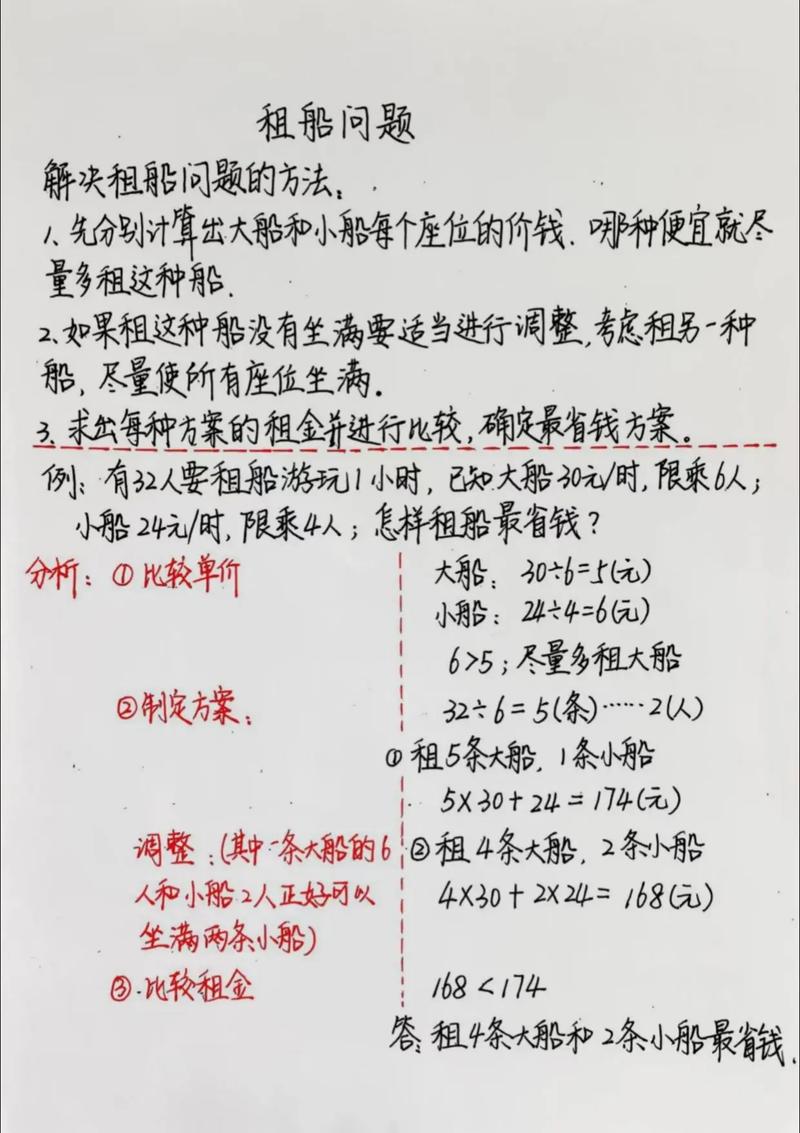 租船问题
解决租船问题的方法：
1、先分别计算出大船和小船每个座位的价钱.哪种便宜就尽
量多租这种船.
2、如果租这种船没有坐满要适当进行调整,考虑租另一种
船，尽量使所有座位坐满。
3、求出每种方案的租金并进行比较，确定最省钱方案。
例：有32人要租船游玩1小时，已知大船30元/时，限乘6人；
小船24元/时，限乘4人；怎样租船最省钱？
分析：①比较单价
大船：30÷6=5(元)
小船：24÷4=6(元)
6>5；尽量多租大船
②制定方案：
32÷6=5(条)……2(人)
①租5条大船，1条小船
5×30+24=174(元)
调整：(其中一条大船的6
人和小船2人正好可以
坐满两条小船)
②租4条大船，2条小船
4×30+2×24=168(元)
③.比较租金
168<174
答：租4条大船和2条小船最省钱.